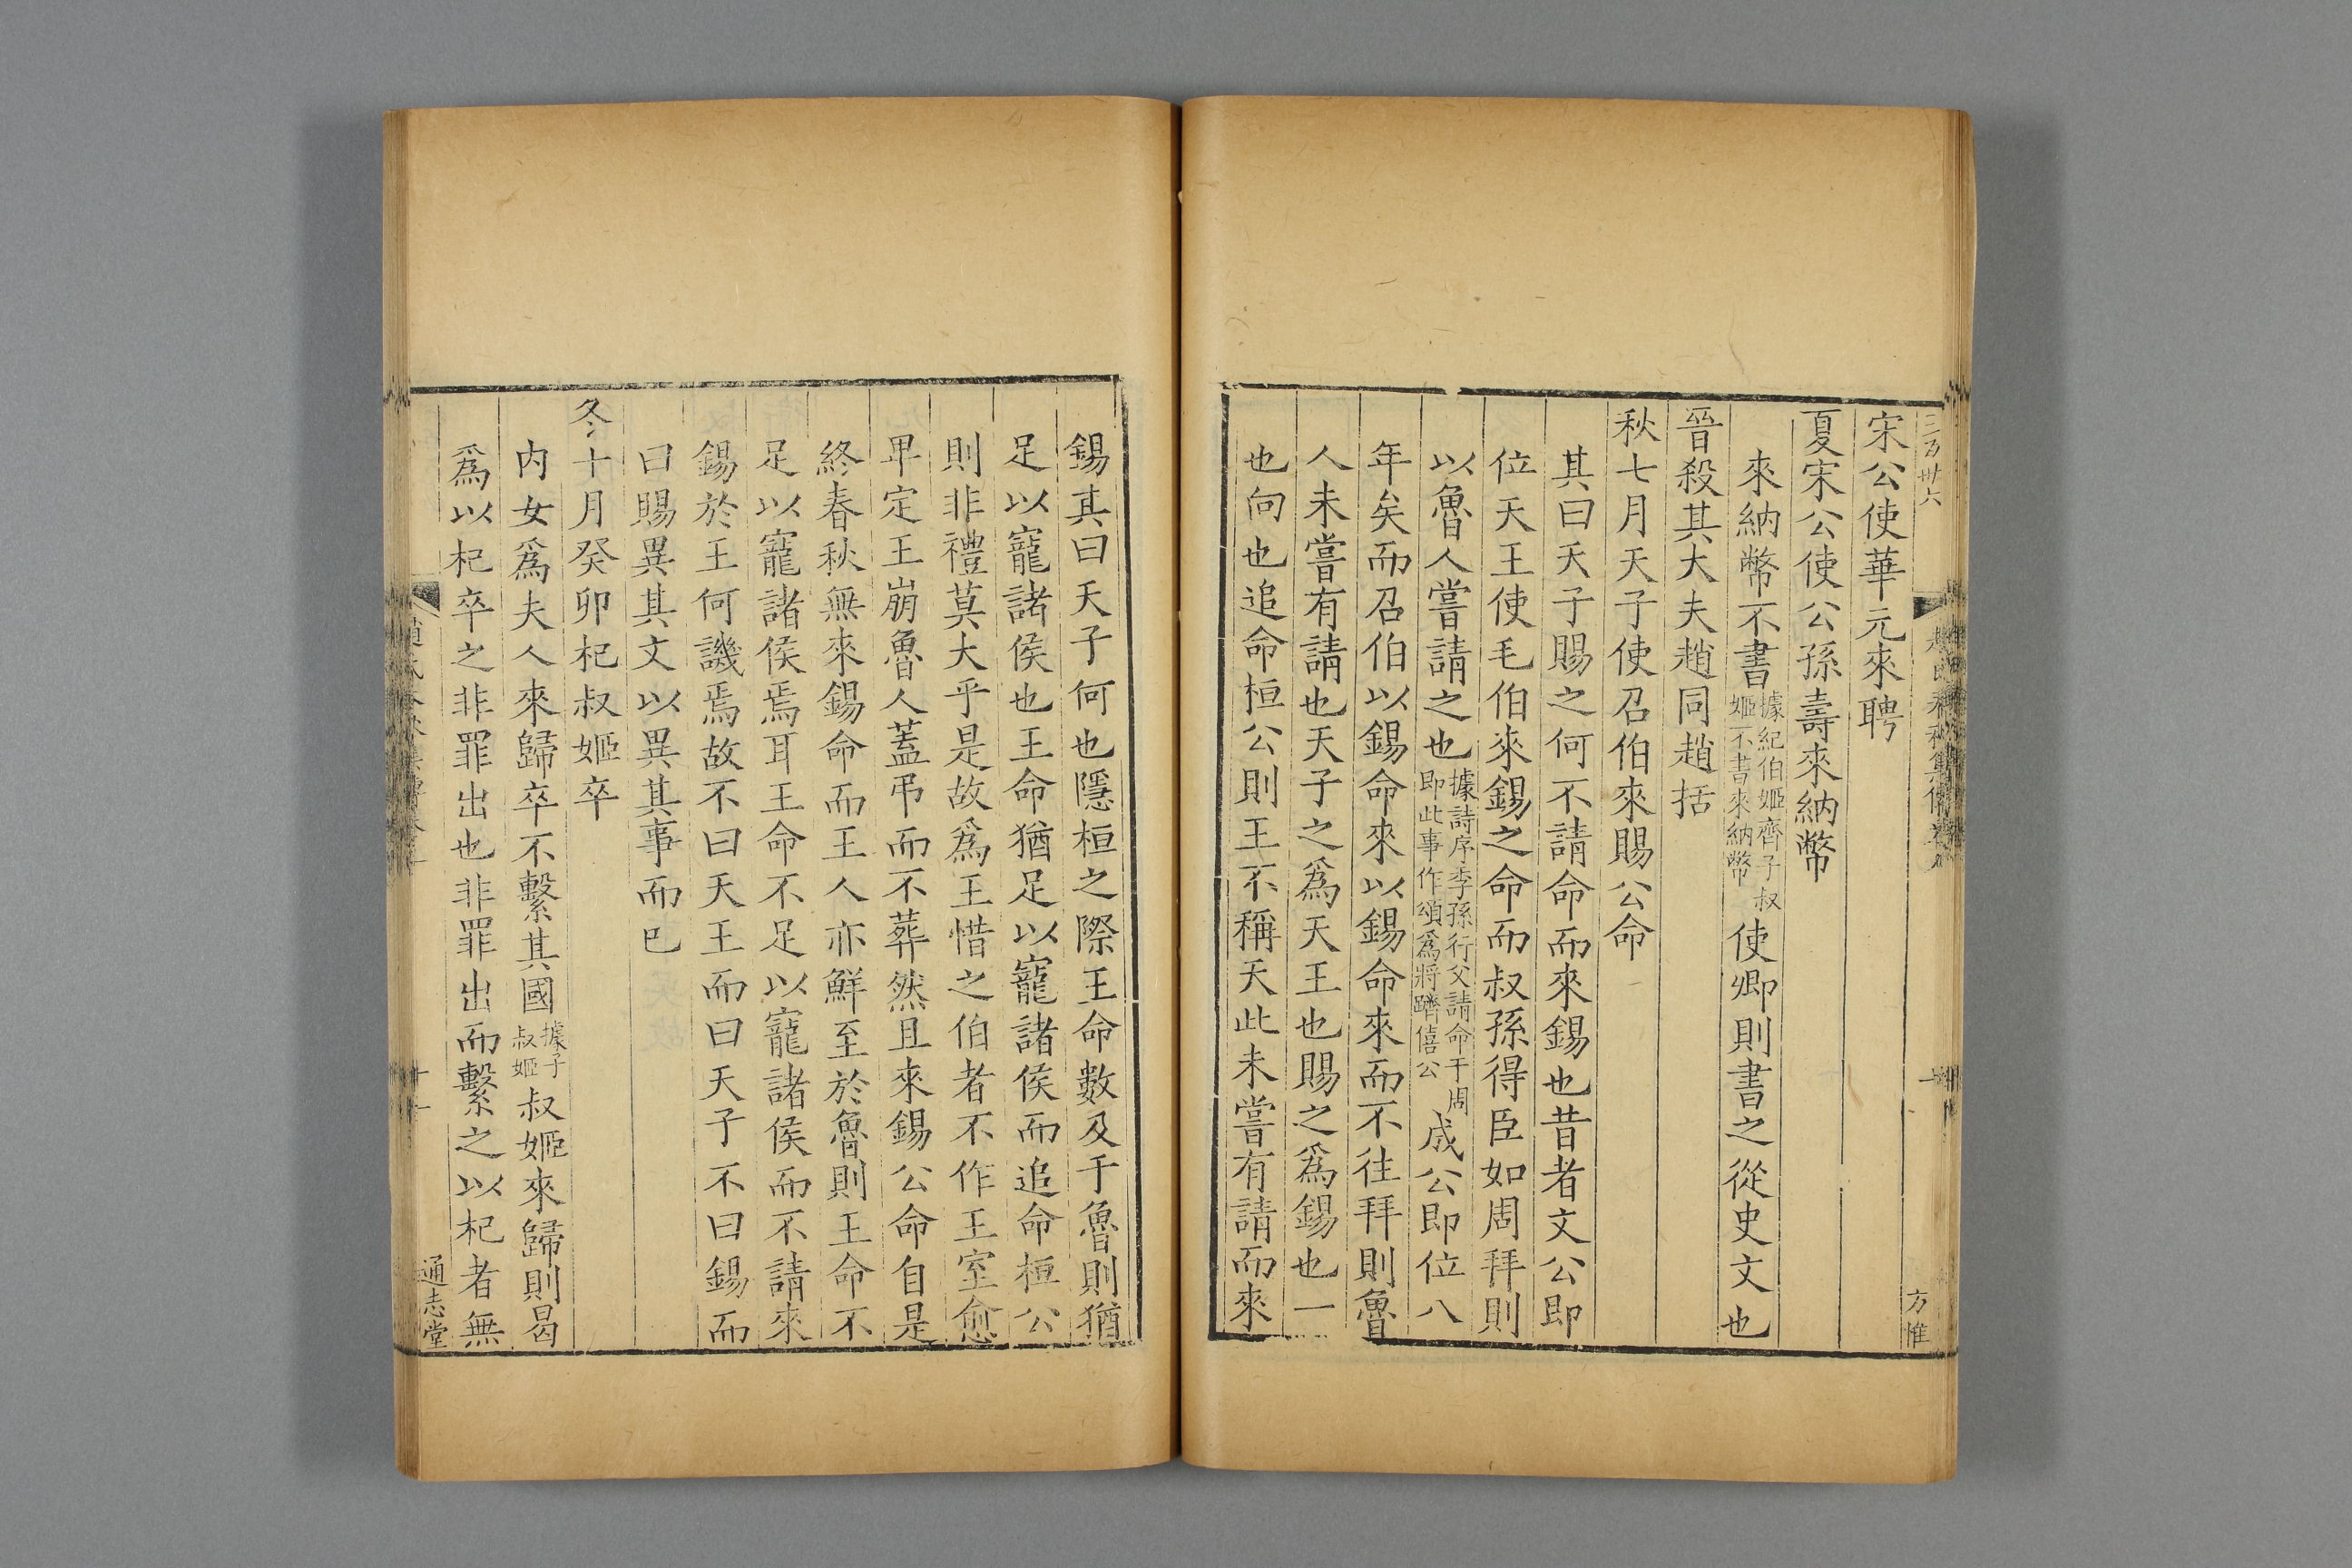 三百卅六
方惟
宋公使華元來聘
夏宋公使公孫壽來納幣
來納幣不書據紀伯姬齊子叔姬不書來納幣使卿則書之從史文也
晉殺其大夫趙同趙括
秋七月天子使召伯來賜公命
其曰天子賜之何不請命而來錫也昔者文公即
位天王使毛伯來錫之命而叔孫得臣如周拜則
以魯人嘗請之也據詩序李孫行父請命于周即此事作頌爲將躋僖公成公即位八
年矣而召伯以錫命來以錫命來而不往拜則魯
人未嘗有請也天子之爲天王也賜之爲錫也一
也向也追命桓公則王不稱天此未嘗有請而來
錫其曰天子何也隱桓之際王命數及于魯則猶
足以寵諸侯也王命猶足以寵諸侯而追命桓公
則非禮莫大乎是故爲王惜之伯者不作王室愈
卑定王崩魯人蓋弔而不葬然且來錫公命自是
終春秋無來錫命而王人亦鮮至於魯則王命不
足以寵諸侯焉耳王命不足以寵諸侯而不請來
錫於王何譏焉故不曰天王而曰天子不曰錫而
曰賜異其文以異其事而巳
冬十月癸卯杞叔姬卒
内女爲夫人來歸卒不繫其國據子叔姬叔姬來歸則曷
爲以杞卒之非罪出也非罪出而繫之以杞者無
通志堂